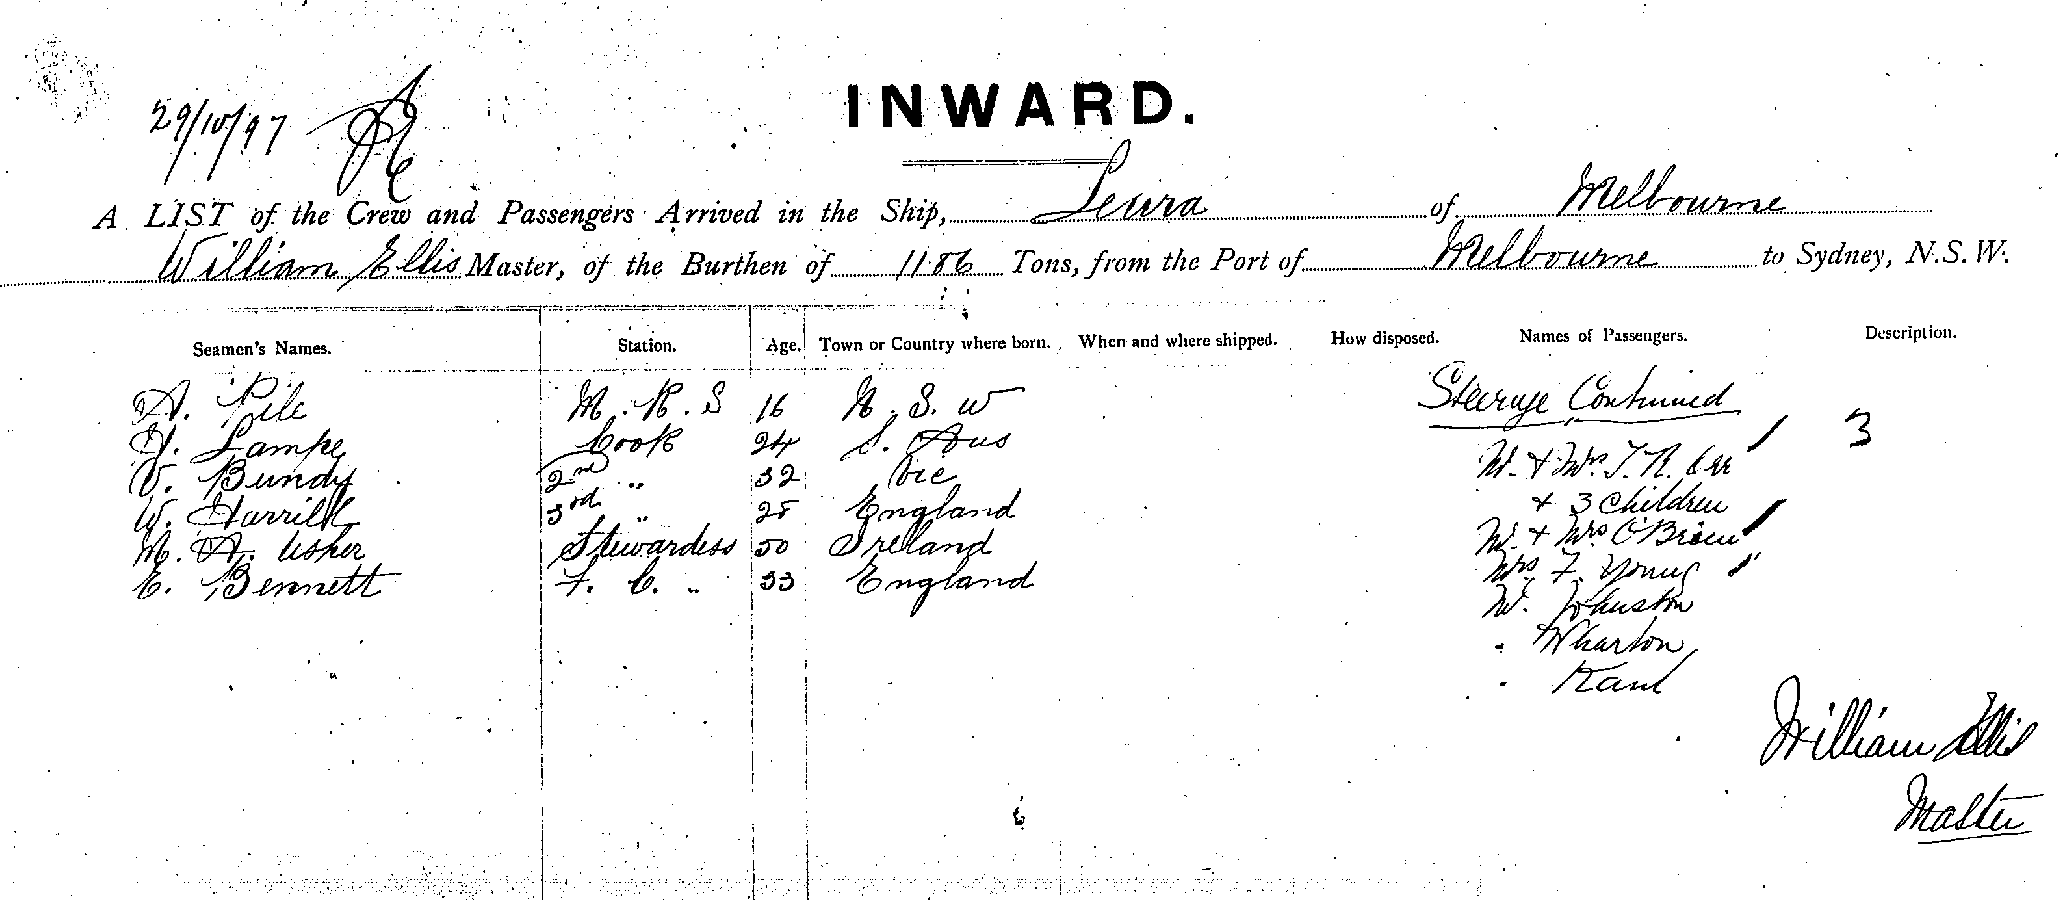 29/10/97
INWARD.
A LIST of the Crew and Passengers Arrived in the Ship, Leura of Melbourne
William Ellis Master, of the Burthen of 1186 Tons, from the Port of Melbourne to Sydney, N.S.W.
Seamen's Names. Station. Age. Town or Country where born. When and where shipped. How disposed. Names of Passengers. Description.
Steerage Continued
A. Pile M. R. S 16 N. S. W
Lampe Cook 24 S. Aus 3
Mr. & Mrs. T. R. Orr
V. Bundy 2nd " 32 Vic
& 3 children
W. Harrill 3rd " 25 England
Mr. & Mrs O'Brien
M. A. Usher Stewardess 50 Ireland
Mrs. F. Young
E. Bennett F. C. " 33 England
Mr. Johnston
" Wharton
"
William Ellis
Master